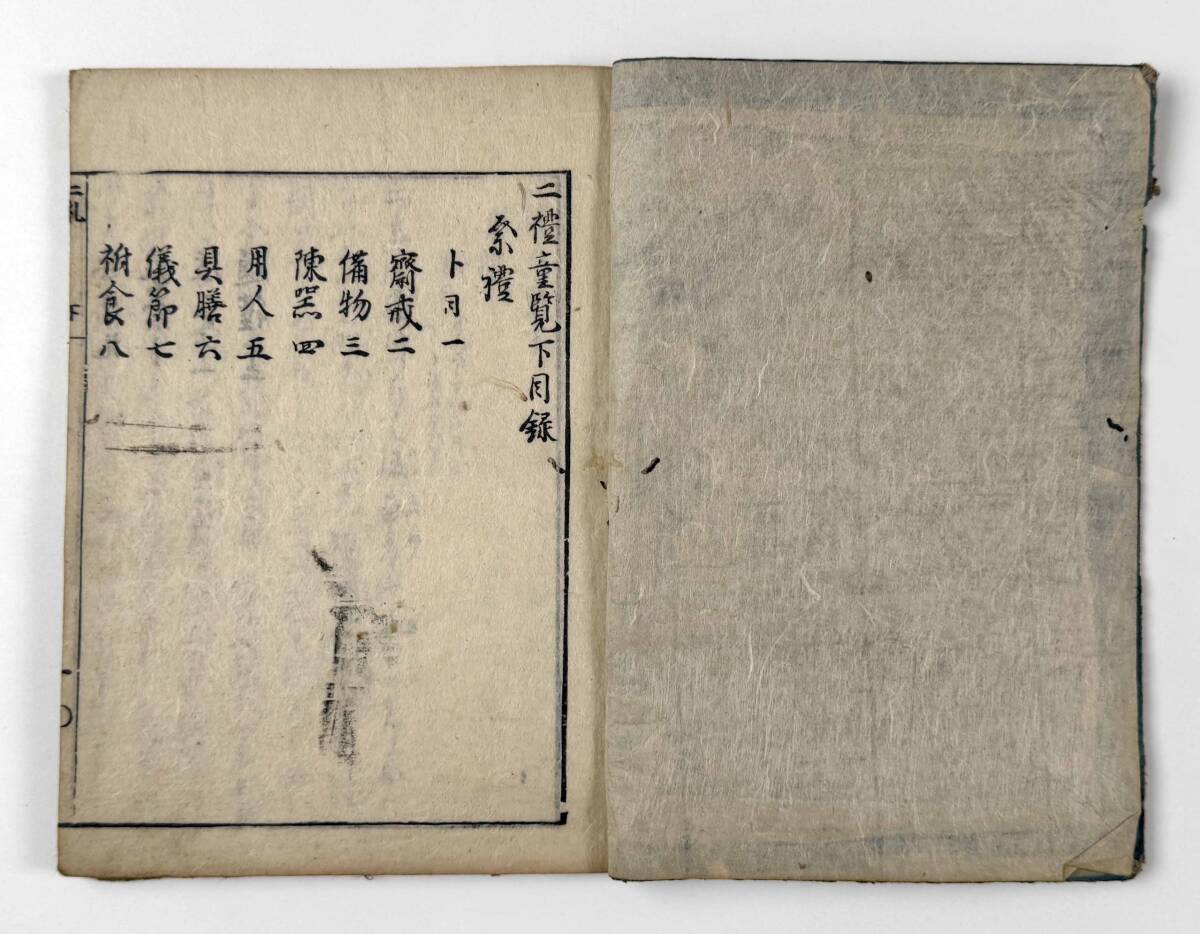 二禮童覽下目録
祭禮
卜日一
齋戒二
備物三
陳器四
用人五
具膳六
儀節七
祔食八
二礼
下
一